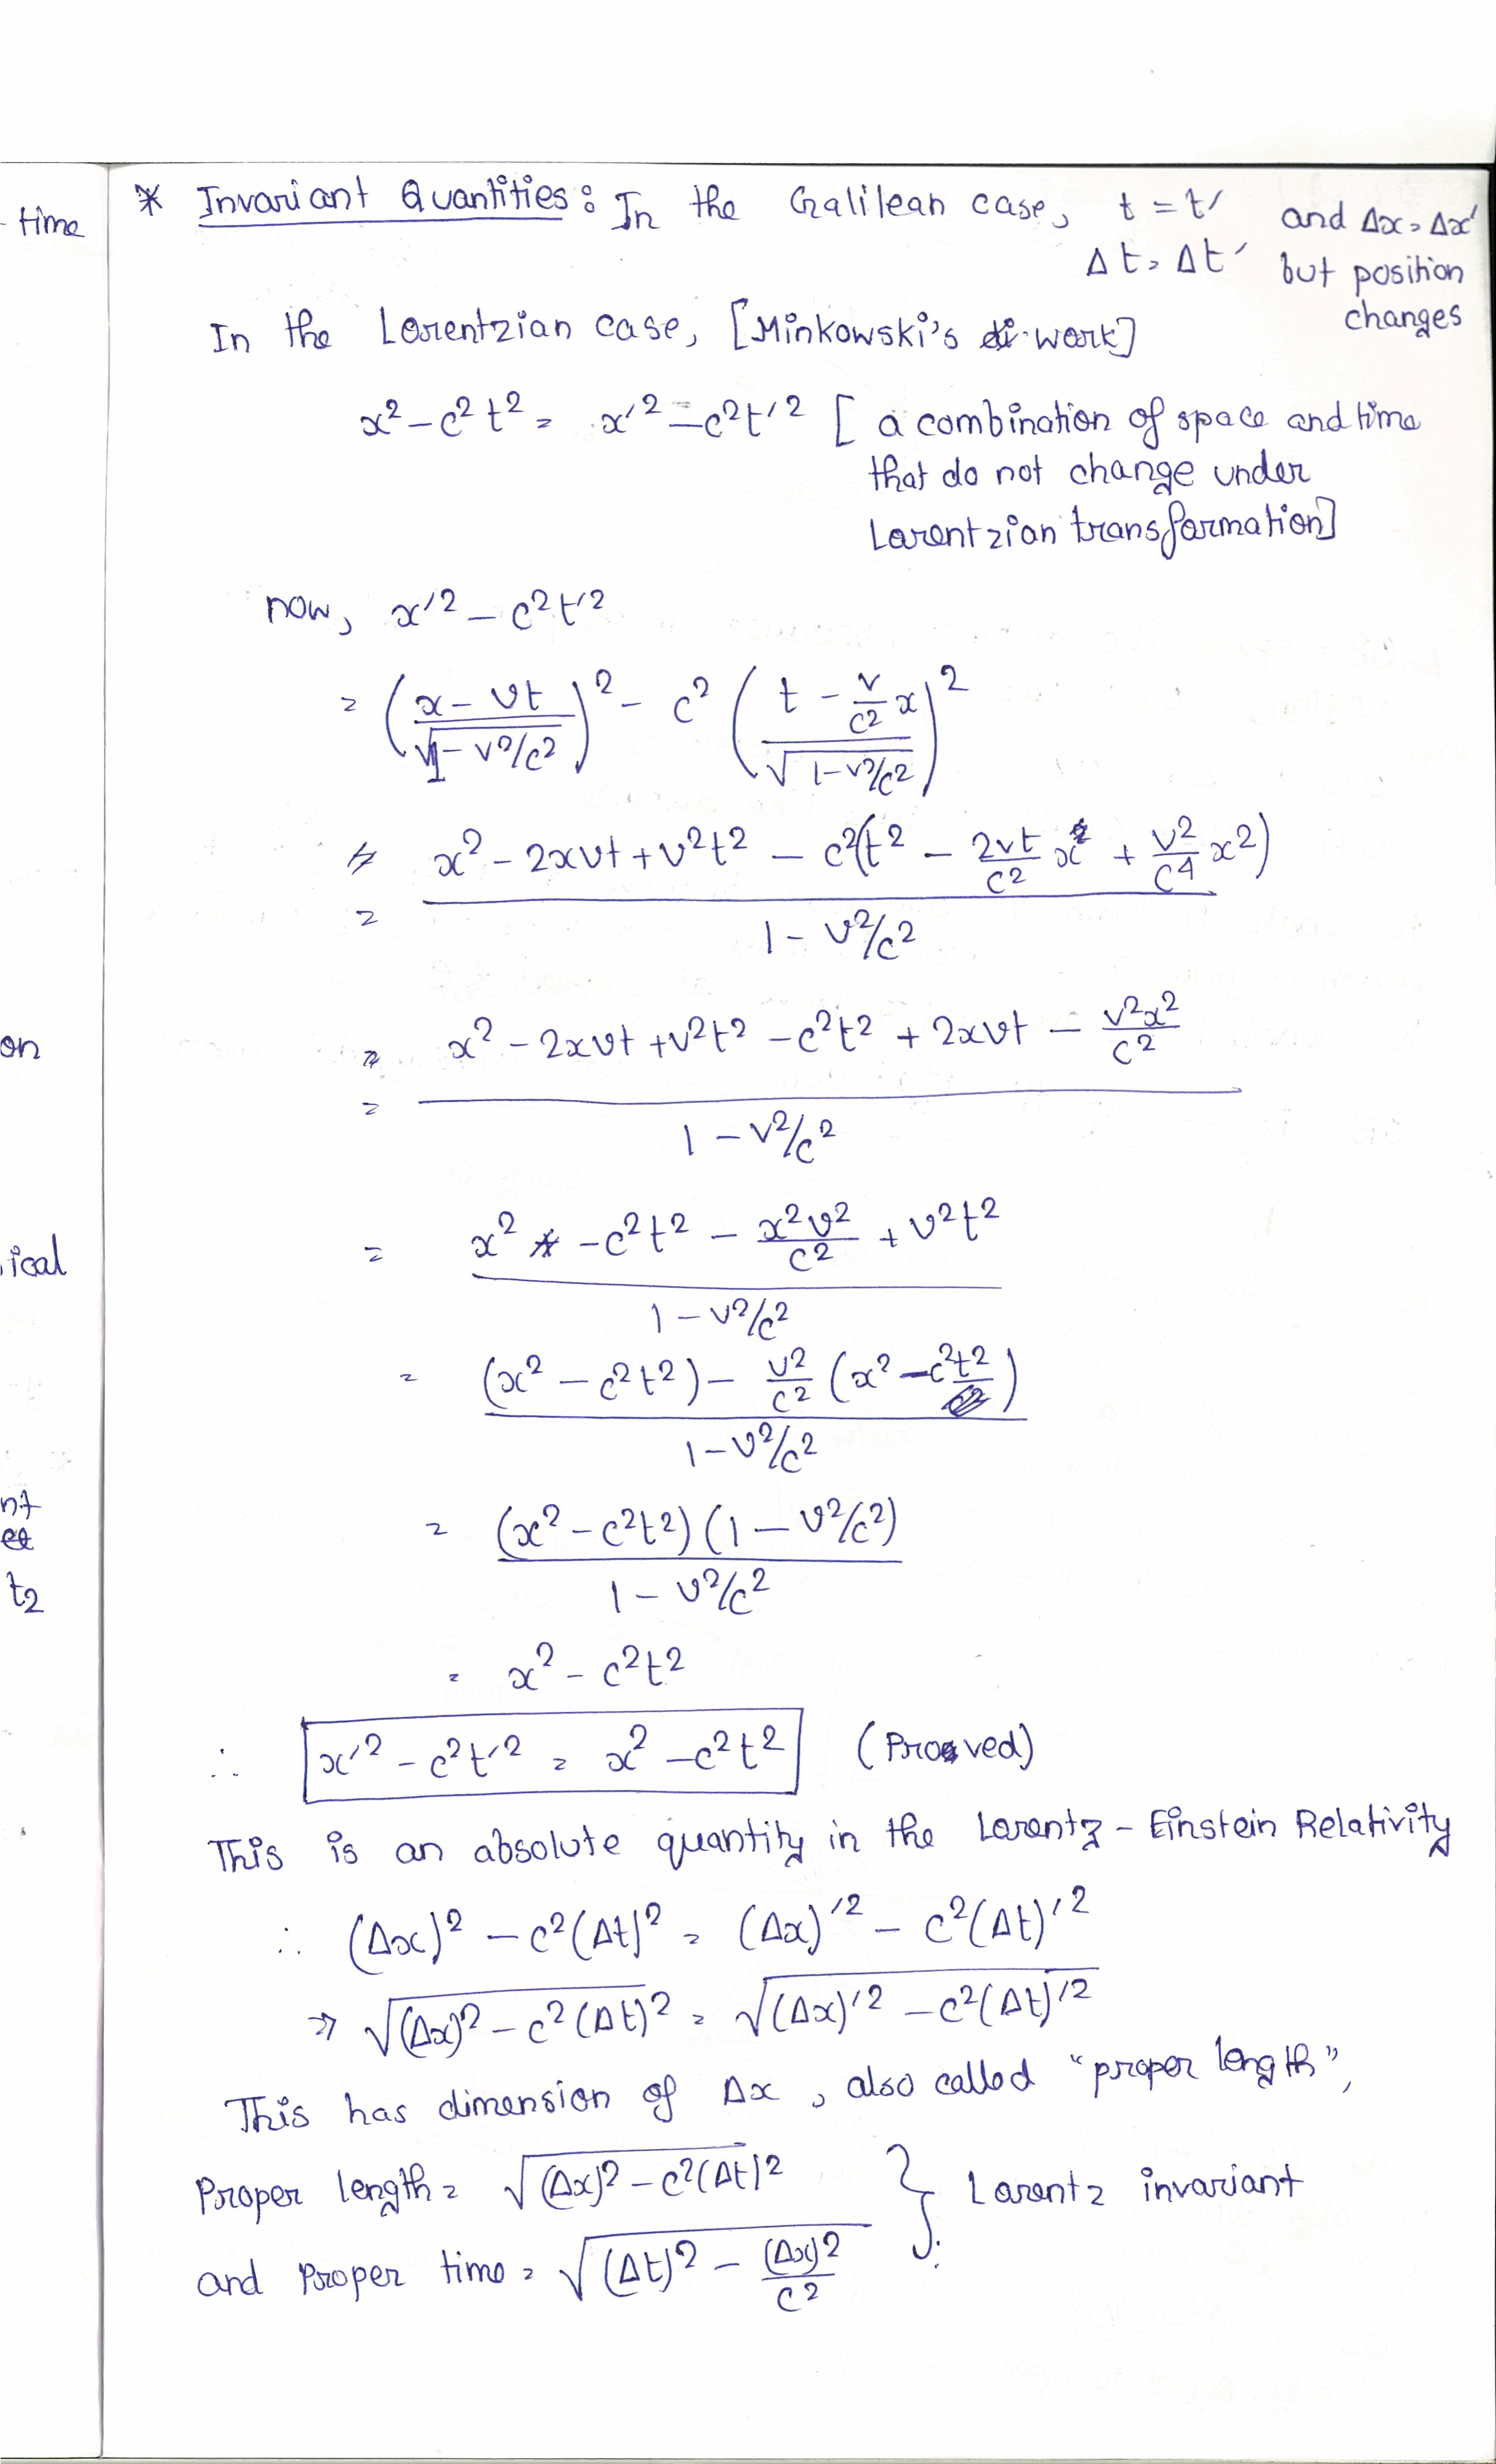 - time
* Invariant Quantities: In the Galilean case, t = t′ and Δx = Δx′
Δt = Δt′ but position
changes
In the Lorentzian case, [Minkowski's work]
x² - c²t² = x′² - c²t′² [a combination of space and time
that do not change under
Lorentzian transformation]
now, x′² - c²t′²
= ((x - vt)/√(1 - v²/c²))² - c² ((t - (v/c²)x)/√(1 - v²/c²))²
= (x² - 2xvt + v²t² - c²(t² - (2vt/c²)x + (v²/c⁴)x²))/(1 - v²/c²)
on
= (x² - 2xvt + v²t² - c²t² + 2xvt - v²x²/c²)/(1 - v²/c²)
ical
= (x² - c²t² - x²v²/c² + v²t²)/(1 - v²/c²)
= ((x² - c²t²) - (v²/c²)(x² - c²t²))/(1 - v²/c²)
nt
= ((x² - c²t²)(1 - v²/c²))/(1 - v²/c²)
t₂
= x² - c²t²
∴ x′² - c²t′² = x² - c²t² (Proved)
This is an absolute quantity in the Lorentz - Einstein Relativity
∴ (Δx)² - c²(Δt)² = (Δx)′² - c²(Δt)′²
⇒ √((Δx)² - c²(Δt)²) = √((Δx)′² - c²(Δt)′²)
This has dimension of Δx, also called "proper length",
Proper length = √((Δx)² - c²(Δt)²) } Lorentz invariant
and Proper time = √((Δt)² - (Δx)²/c²)